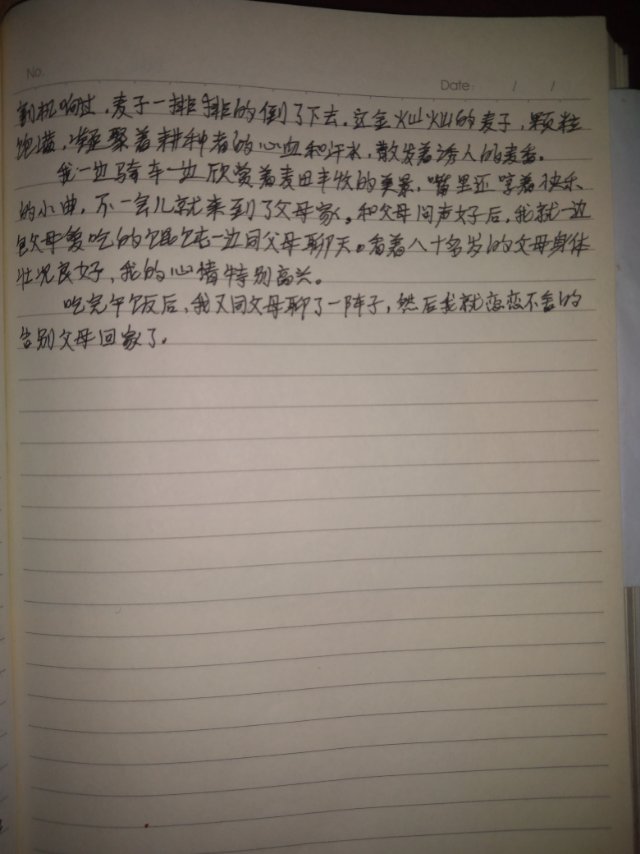 No.
Date: / /
割机响过，麦子一排排的倒了下去。这金灿灿的麦子，颗粒
饱满，凝聚着耕种者的心血和汗水，散发着诱人的麦香。
我一边骑车一边欣赏着麦田丰收的美景，嘴里还哼着快乐
的小曲，不一会儿就来到了父母家。和父母问声好后，我就一边
包父母爱吃的馄饨一边同父母聊天。看着八十多岁的父母身体
状况良好，我的心情特别高兴。
吃完午饭后，我又同父母聊了一阵子，然后我就恋恋不舍的
告别父母回家了。